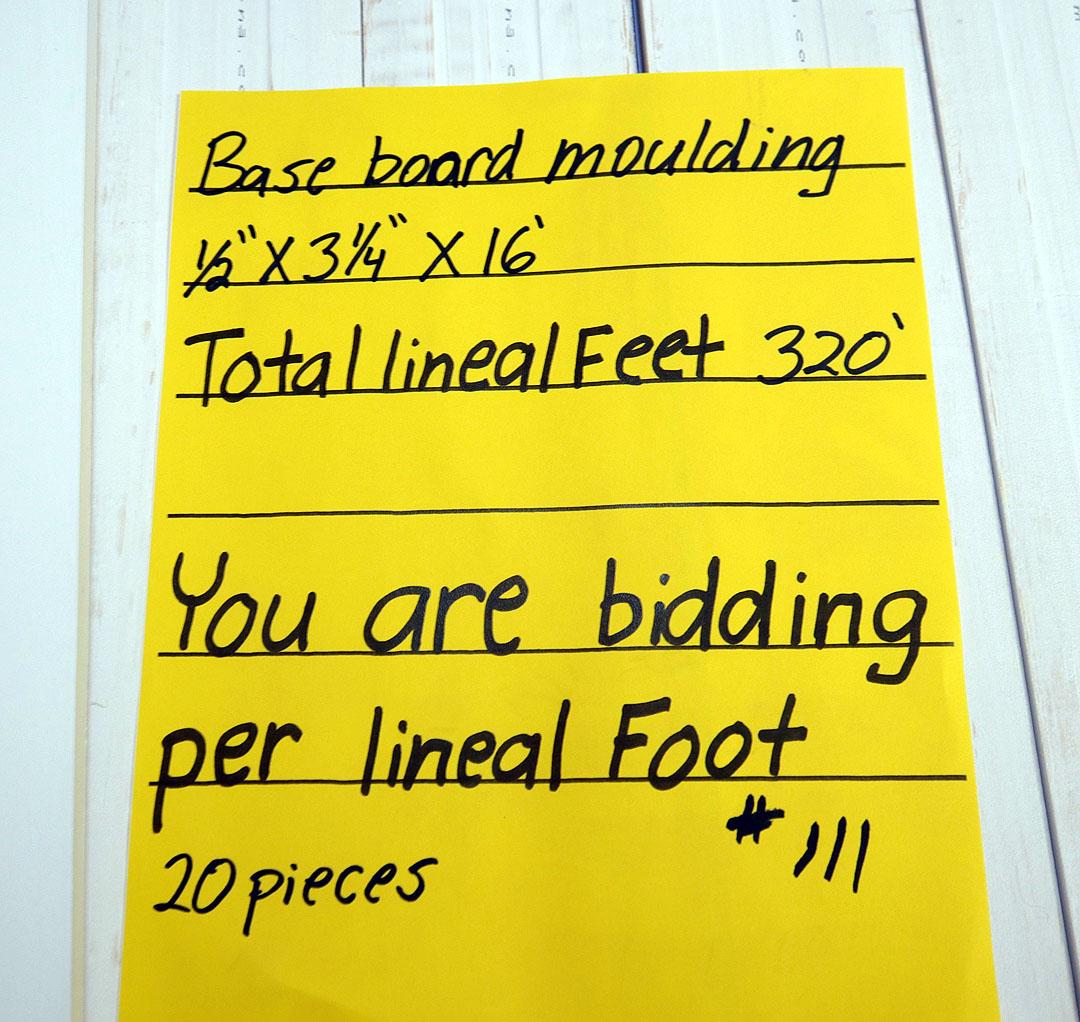 Base board moulding
½" X 3¼" X 16'
Total lineal Feet 320'
You are bidding
per lineal Foot
# 111
20 pieces